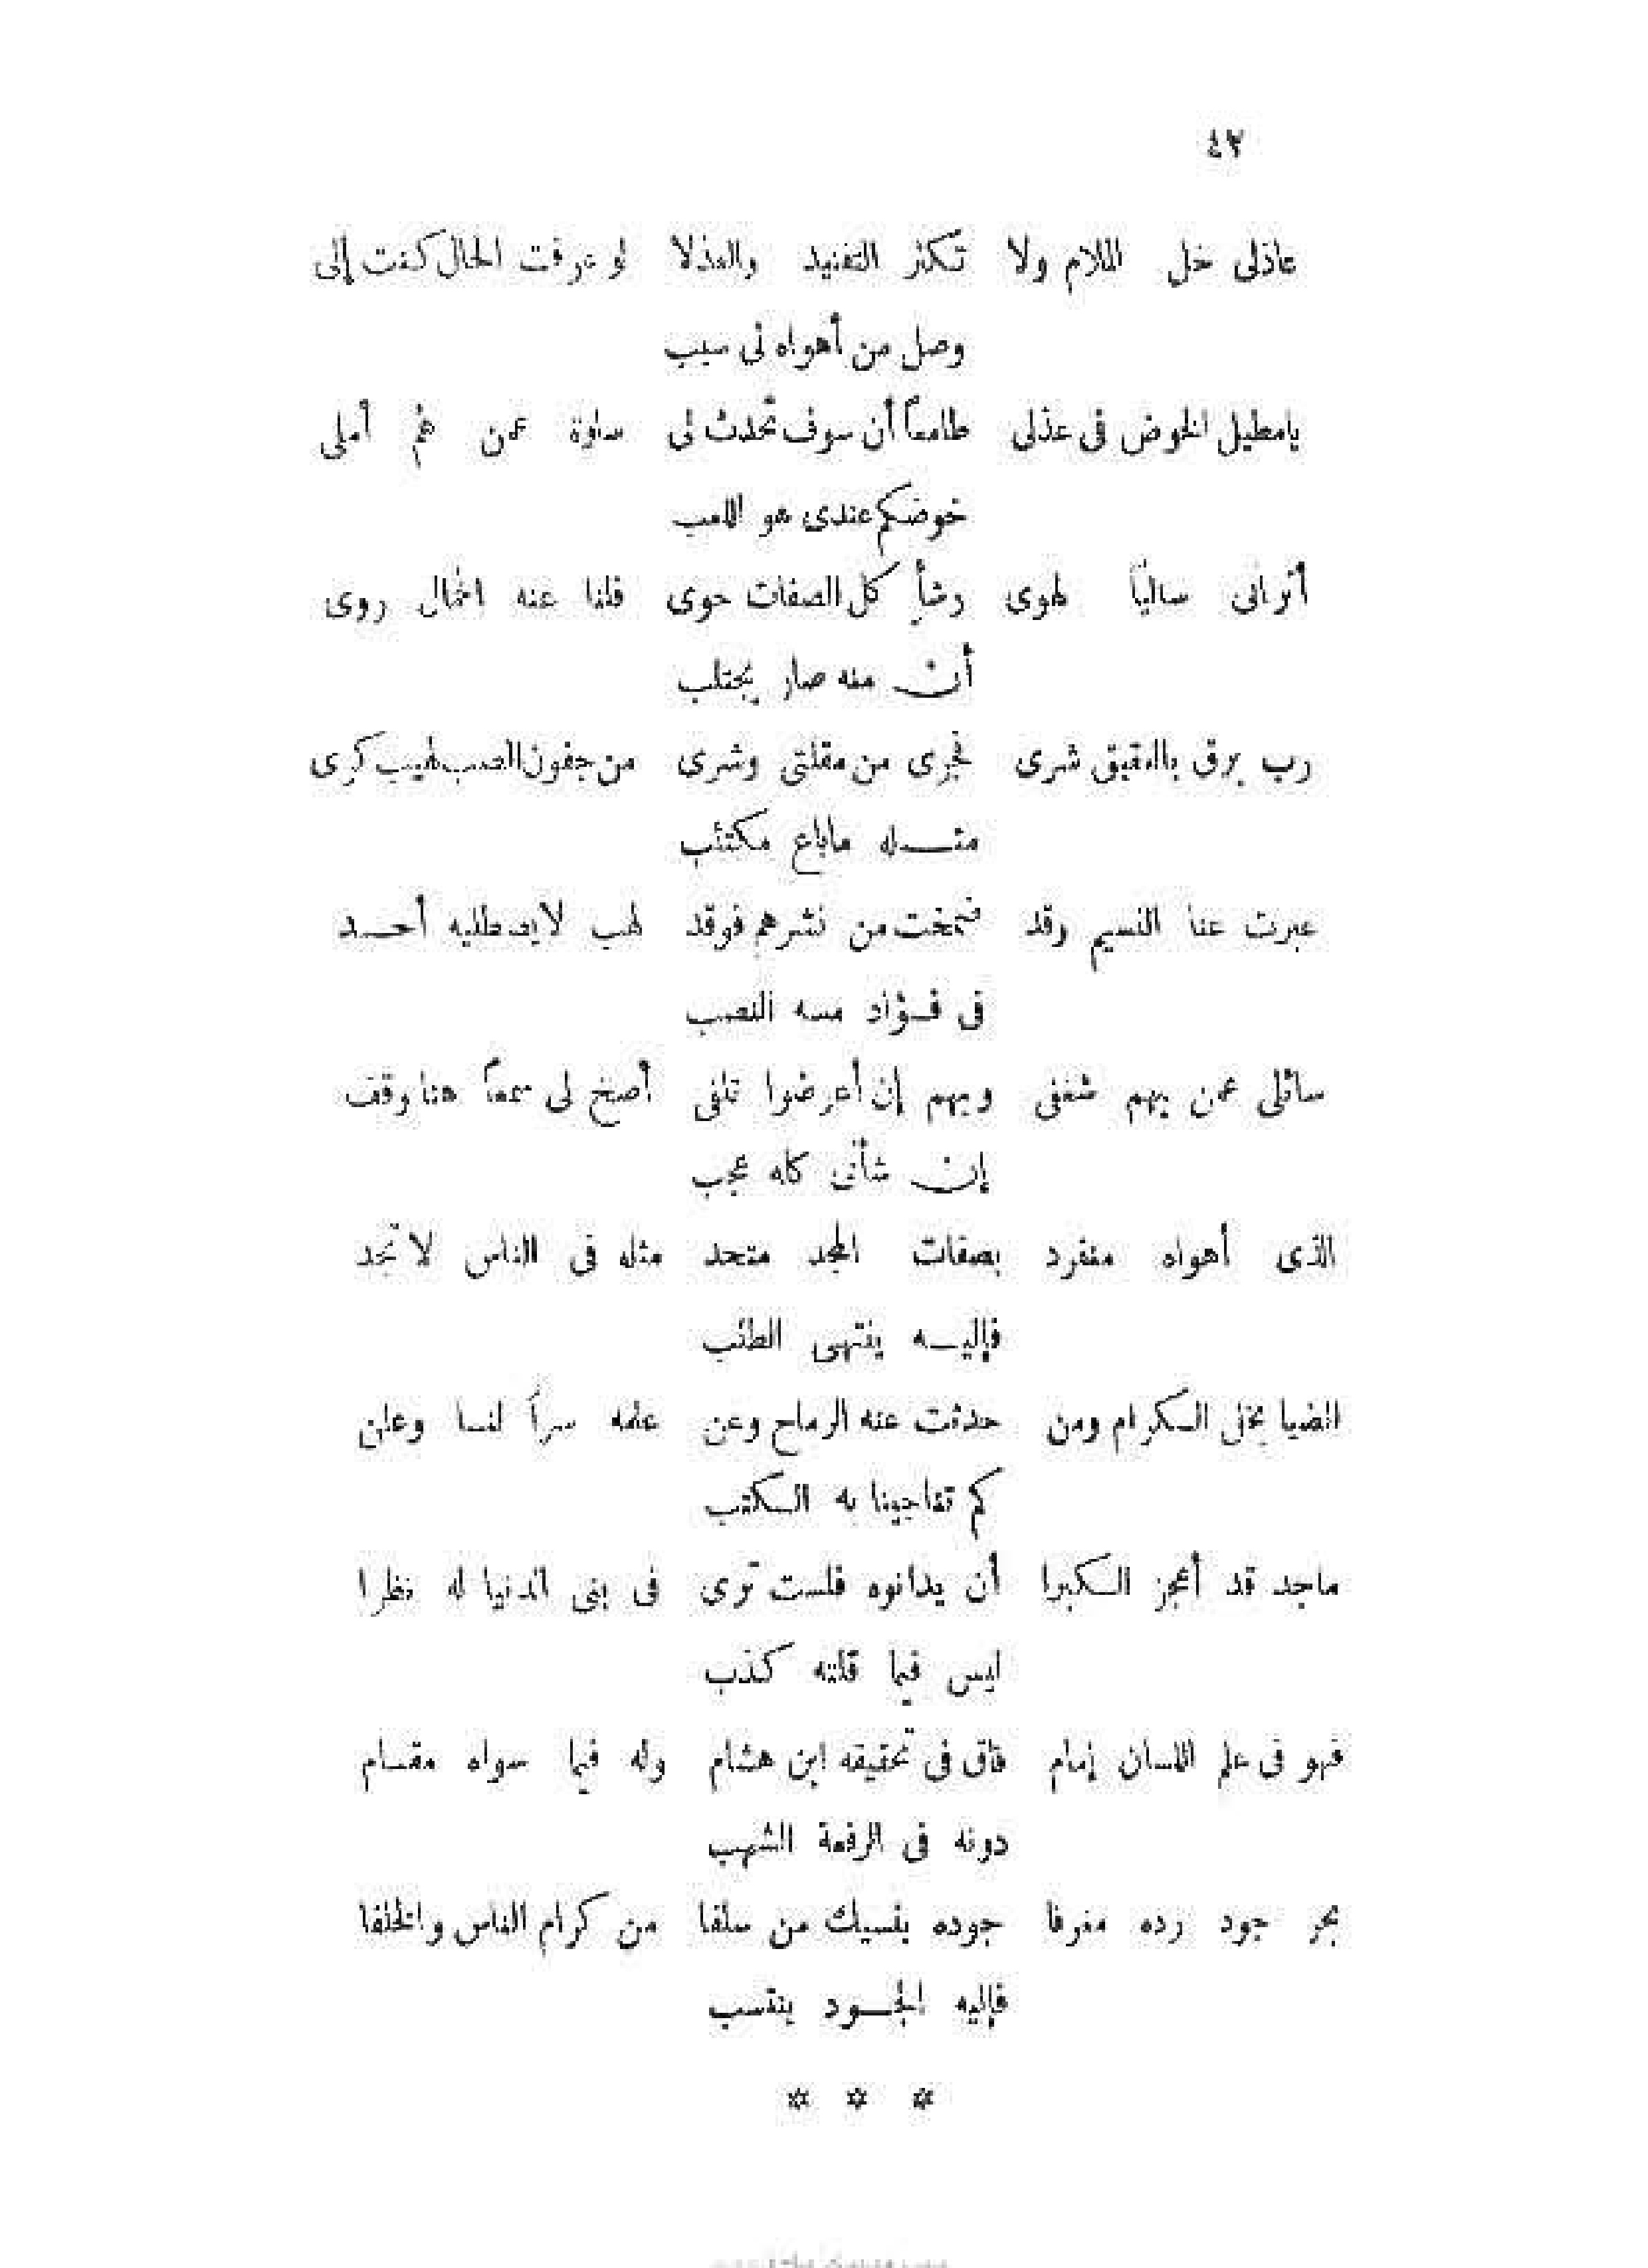 ٤٢
عاذلى خل الملام ولا تكثر التفنيد والعذلا لو عرفت الحال كنت إلى
وصل من أهواه لى سبب
يامطيل الخوض فى عذلى طامعاً أن سوف تحدث لى سلوة عمن هم أملى
خوضكم عندى هو اللعب
أترانى سالياً لهوى رشأ كل الصفات حوى فلنا عنه الجمال روى
أن منه صار يجتلب
رب برق بالعقيق شرى فجرى من مقلتى وشرى من جفون الصب طيب كرى
مثله ماباع مكتئب
عبرت عنا النسيم وقد من نشرهم فوقد لهب لايصطليه أحد
فى فؤاد مسه النصب
سائلى عمن بهم شغفى وبهم إن أعرضوا تلفى أصخ لى سمعاً هنا وقف
إن شأنى كله عجب
الذى أهواه منفرد بصفات المجد متحد مثله فى الناس لا تجد
فإليه ينتهى الطلب
الضيا الكرام ومن حدثت عنه الرماح وعن علمه سراً لنا وعلن
كم تفاجينا به الكتب
ماجد قد أعجز الكبرا أن يدانوه فلست ترى فى بنى الدنيا له نظرا
ليس فيما قلته كذب
فهو فى علم اللسان إمام فاق فى تحقيقه ابن هشام وله فيما سواه مقام
دونه فى الرفعة الشهب
بحر جود رده مغرفا جوده ينسيك من سلفا من كرام الناس والخلفا
فإليه الجود ينتسب
* * *